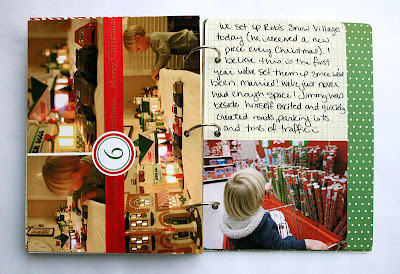 Merry Christmas
6
We set up Rob's Snow Village
today (he received a new
piece every Christmas). I
believe this is the first
year we've set them up since we've
been married! We've just never
had enough space! Jimmy was
beside himself excited and quickly
created roads, parking lots
and tons of traffic.